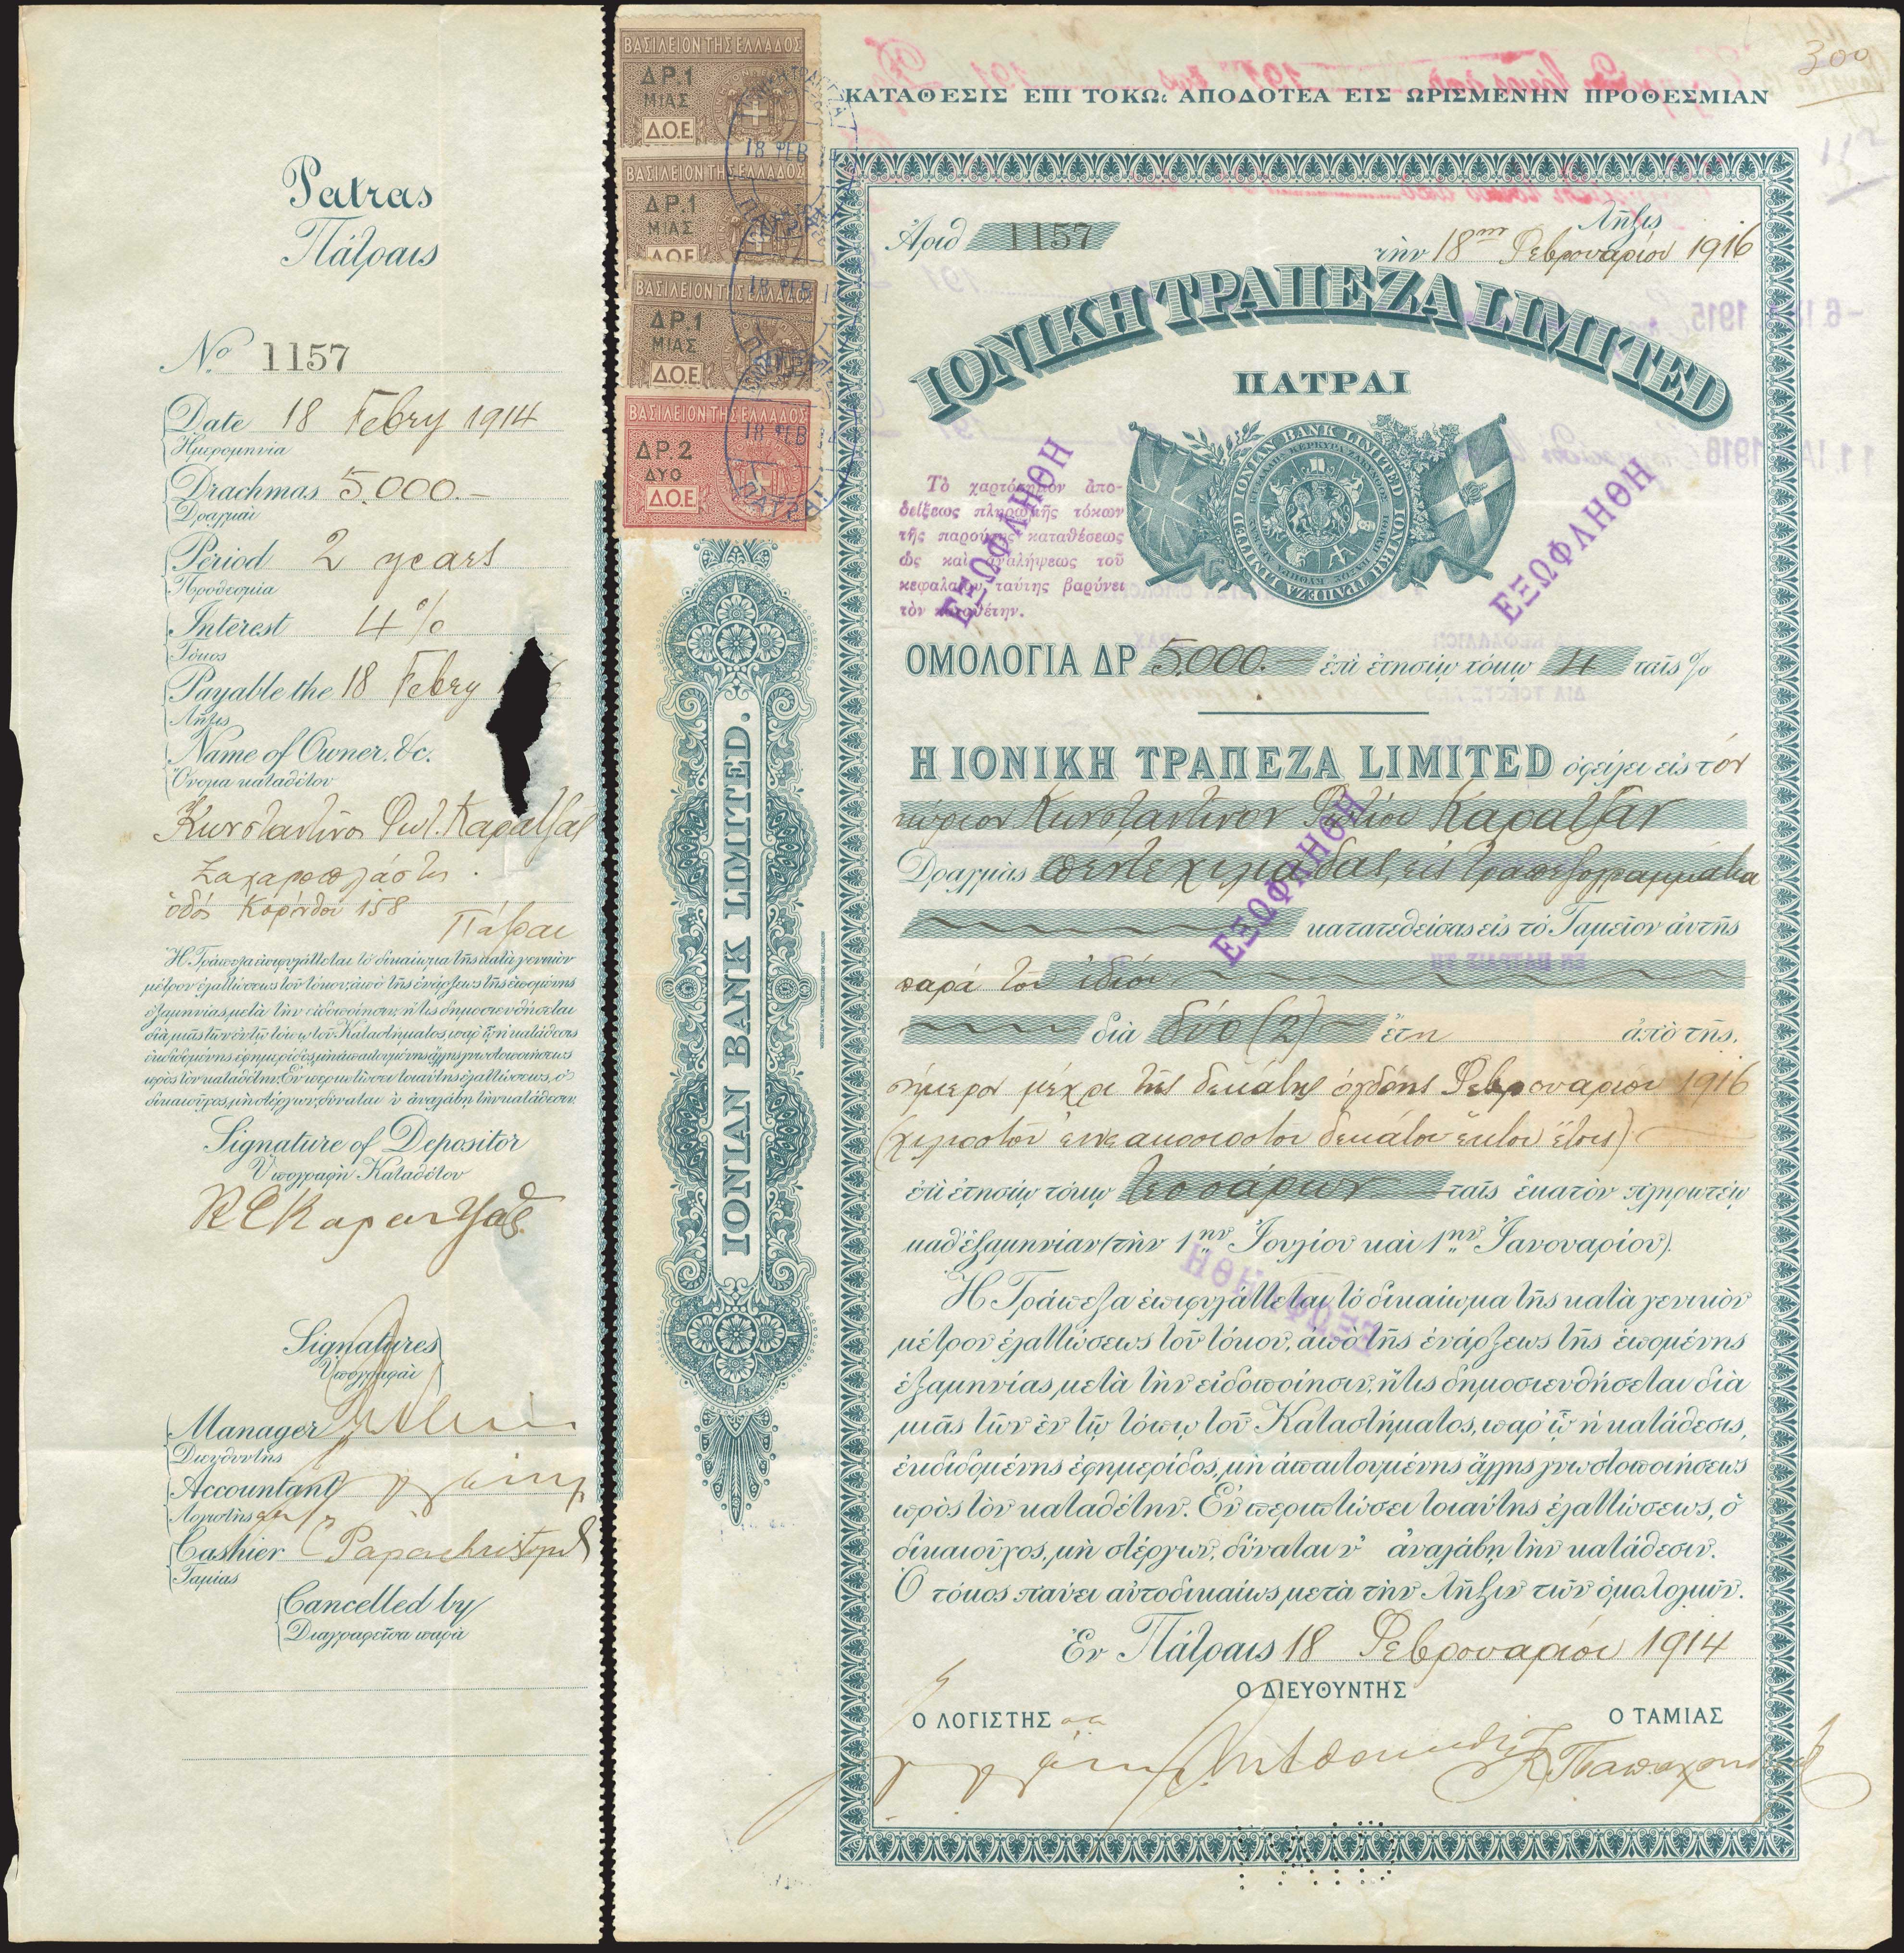 Patras
Πάτραις
No 1157
Date 18 Febry 1914
Ἡμερομηνία
Drachmas 5.000.-
Δραχμαὶ
Period 2 years
Προθεσμία
Interest 4%
Τόκος
Payable the 18 Febry
Λῆξις
Name of Owner. &c.
Ὄνομα καταθέτου
Κωνσταντῖνος Φωτ. Καρατζᾶς
Ζαχαροπλάστης.
ὁδός Κορίνθου 158
Πάτραι
Ἡ Τράπεζα ἐπιφυλάττεται τὸ δικαίωμα τῆς κατὰ γενικὸν
μέτρον ἐλαττώσεως τοῦ τόκου, ἀπὸ τῆς ἐνάρξεως τῆς ἑπομένης
ἑξαμηνίας, μετὰ τὴν εἰδοποίησιν, ἥτις δημοσιευθήσεται
διὰ μιᾶς τῶν ἐν τῷ τόπῳ τοῦ Καταστήματος, παρ' ᾧ ἡ κατάθεσις
ἐκδιδομένης ἐφημερίδος, μὴ ἀπαιτουμένης ἄλλης γνωστοποιήσεως
πρὸς τὸν καταθέτην. Ἐν περιπτώσει τοιαύτης ἐλαττώσεως, ὁ
δικαιοῦχος, μὴ στέργων, δύναται ν' ἀναλάβῃ τὴν κατάθεσιν.
Signature of Depositor
Ὑπογραφὴ Καταθέτου
Signatures
Ὑπογραφαὶ
Manager
Διευθυντὴς
Accountant
Λογιστὴς
Cashier C Papachristopoulos
Ταμίας
Cancelled by
Διαγραφεῖσα παρὰ
ΒΑΣΙΛΕΙΟΝ ΤΗΣ ΕΛΛΑΔΟΣ
ΔΡ.1
ΜΙΑΣ
Δ.Ο.Ε.
18 ΦΕΒ
ΒΑΣΙΛΕΙΟΝ ΤΗΣ ΕΛΛΑΔΟΣ
ΔΡ.1
ΜΙΑΣ
Δ.Ο.Ε.
ΒΑΣΙΛΕΙΟΝ ΤΗΣ ΕΛΛΑΔΟΣ
18 ΦΕΒ
ΔΡ.1
ΜΙΑΣ
Δ.Ο.Ε.
ΒΑΣΙΛΕΙΟΝ ΤΗΣ ΕΛΛΑΔΟΣ
18 ΦΕΒ
ΔΡ.2
ΔΥΟ
Δ.Ο.Ε.
IONIAN BANK LIMITED.
300
ΚΑΤΑΘΕΣΙΣ ΕΠΙ ΤΟΚΩ: ΑΠΟΔΟΤΕΑ ΕΙΣ ΩΡΙΣΜΕΝΗΝ ΠΡΟΘΕΣΜΙΑΝ
Λῆξις
Ἀριθ 1157 τὴν 18ην Φεβρουαρίου 1916
ΙΟΝΙΚΗ ΤΡΑΠΕΖΑ LIMITED
ΠΑΤΡΑΙ
IONIAN BANK LIMITED ΙΟΝΙΚΗ ΤΡΑΠΕΖΑ LIMITED
Τὸ χαρτόσημον ἀπο-
δείξεως πληρωμῆς τόκων
τῆς παρούσης καταθέσεως
ὡς καὶ ἀναλήψεως τοῦ
κεφαλαίου ταύτης βαρύνει
τὸν καταθέτην.
ΕΞΩΦΛΗΘΗ
ΕΞΩΦΛΗΘΗ
ΟΜΟΛΟΓΙΑ ΔΡ 5.000.- ἐπὶ ἐτησίῳ τόκῳ 4 ταῖς %
Η ΙΟΝΙΚΗ ΤΡΑΠΕΖΑ LIMITED ὀφείλει εἰς τόν
κύριον Κωνσταντῖνον Φωτίου Καρατζᾶν
Δραχμὰς πέντε χιλιάδας, εἰς τραπεζογραμμάτια
κατατεθείσας εἰς τὸ Ταμεῖον αὐτῆς
παρὰ τοῦ ἰδίου
διὰ δύο (2) ἔτη ἀπὸ τῆς.
σήμερον μέχρι τῆς δεκάτης ὀγδόης Φεβρουαρίου 1916
(χιλιοστοῦ ἐννεακοσιοστοῦ δεκάτου ἕκτου ἔτους)
ΕΞΩΦΛΗΘΗ
ἐπὶ ἐτησίῳ τόκῳ τεσσάρων ταῖς ἑκατὸν πληρωτέῳ
καθ' ἑξαμηνίαν (τὴν 1ην Ἰουλίου καὶ 1ην Ἰανουαρίου).
Ἡ Τράπεζα ἐπιφυλάττεται τὸ δικαίωμα τῆς κατὰ γενικὸν
μέτρον ἐλαττώσεως τοῦ τόκου, ἀπὸ τῆς ἐνάρξεως τῆς ἑπομένης
ἑξαμηνίας, μετὰ τὴν εἰδοποίησιν, ἥτις δημοσιευθήσεται διὰ
μιᾶς τῶν ἐν τῷ τόπῳ τοῦ Καταστήματος, παρ' ᾧ ἡ κατάθεσις,
ἐκδιδομένης ἐφημερίδος, μὴ ἀπαιτουμένης ἄλλης γνωστοποιήσεως
πρὸς τὸν καταθέτην. Ἐν περιπτώσει τοιαύτης ἐλαττώσεως, ὁ
δικαιοῦχος, μὴ στέργων, δύναται ν' ἀναλάβῃ τὴν κατάθεσιν.
Ὁ τόκος παύει αὐτοδικαίως μετὰ τὴν Λῆξιν τῶν ὁμολογιῶν.
ΕΞΩΦΛΗΘΗ
Ἐν Πάτραις 18 Φεβρουαρίου 1914
Ο ΔΙΕΥΘΥΝΤΗΣ
Ο ΛΟΓΙΣΤΗΣ
Ο ΤΑΜΙΑΣ